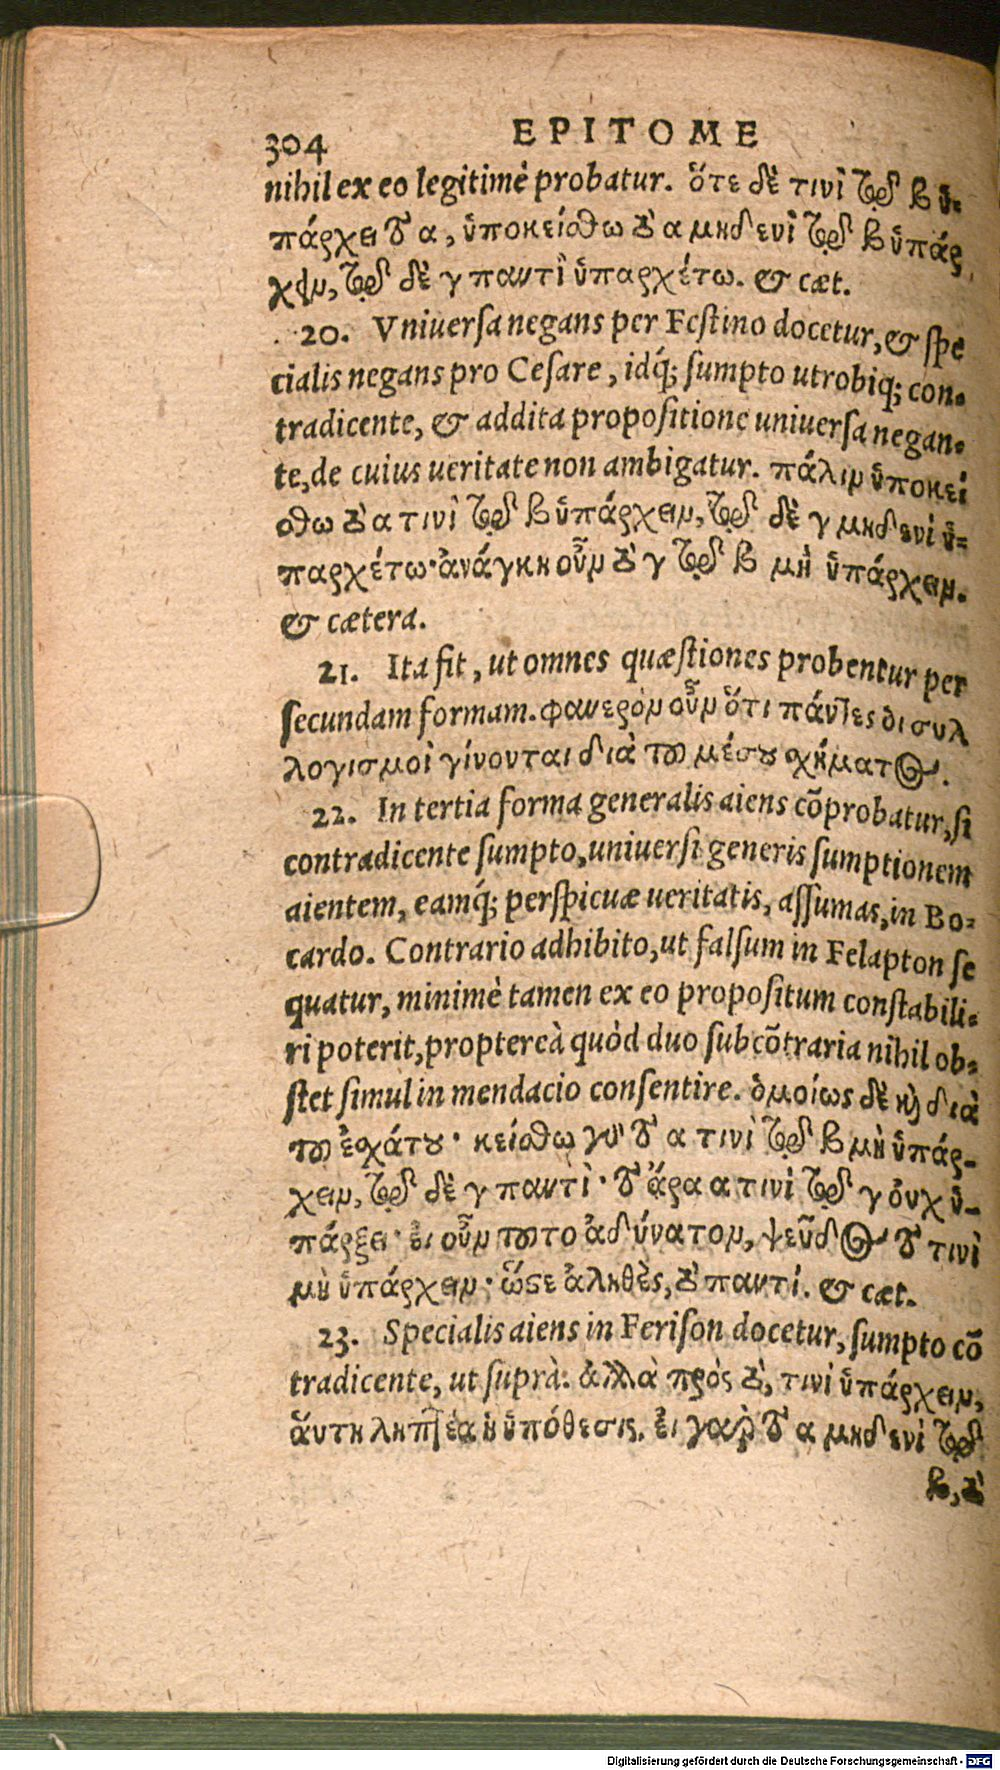 304 EPITOME
nihil ex eo legitimè probatur. ὅτε δὲ τινὶ τῷ β ὑ-
πάρχει τὸ α, ὑποκείσθω τὸ α μηδενὶ τῷ β ὑπάρ
χειν, τῷ δὲ γ παντὶ ὑπαρχέτω. & cæt.
20. Vniuersa negans per Festino docetur, & spe
cialis negans pro Cesare, idq́; sumpto utrobiq; con-
tradicente, & addita propositione uniuersa negan-
te, de cuius ueritate non ambigatur. πάλιν ὑποκεί
σθω τὸ α τινὶ τῷ β ὑπάρχειν, τῷ δὲ γ μηδενὶ ὑ-
παρχέτω· ἀνάγκη οὖν τὸ γ τῷ β μὴ ὑπάρχειν.
& cætera.
21. Ita fit, ut omnes quæstiones probentur per
secundam formam. φανερὸν οὖν ὅτι πάντες ὁι συλ
λογισμοὶ γίνονται διὰ τοῦ μέσου σχήματος.
22. In tertia forma generalis aiens cõprobatur, si
contradicente sumpto, uniuersi generis sumptionem
aientem, eamq́; perspicuæ ueritatis, assumas, in Bo-
cardo. Contrario adhibito, ut falsum in Felapton se
quatur, minimè tamen ex eo propositum constabili-
ri poterit, proptereà quòd duo subcõtraria nihil ob-
stet simul in mendacio consentire. ὁμοίως δὲ καὶ διὰ
τοῦ ἐσχάτου· κείσθω γὰρ τὸ α τινὶ τῷ β μὴ ὑπάρ-
χειν, τῷ δὲ γ παντὶ· τὸ ἄρα α τινὶ τῷ γ ὀυχ ὑ-
πάρξει· ἐι οὖν τοῦτο ἀδύνατον, ψεῦδος τὸ τινὶ
μὴ ὑπάρχειν· ὥστε ἀληθὲς, τὸ παντί. & cæt.
23. Specialis aiens in Ferison docetur, sumpto cõ
tradicente, ut suprà. ἀλλὰ πρὸς τὸ, τινὶ ὑπάρχειν,
ἅυτη ληπτέα ἡ ὑπόθεσις. ἐι γὰρ τὸ α μηδενὶ τῷ
β, τὸ
Digitalisierung gefördert durch die Deutsche Forschungsgemeinschaft - DFG